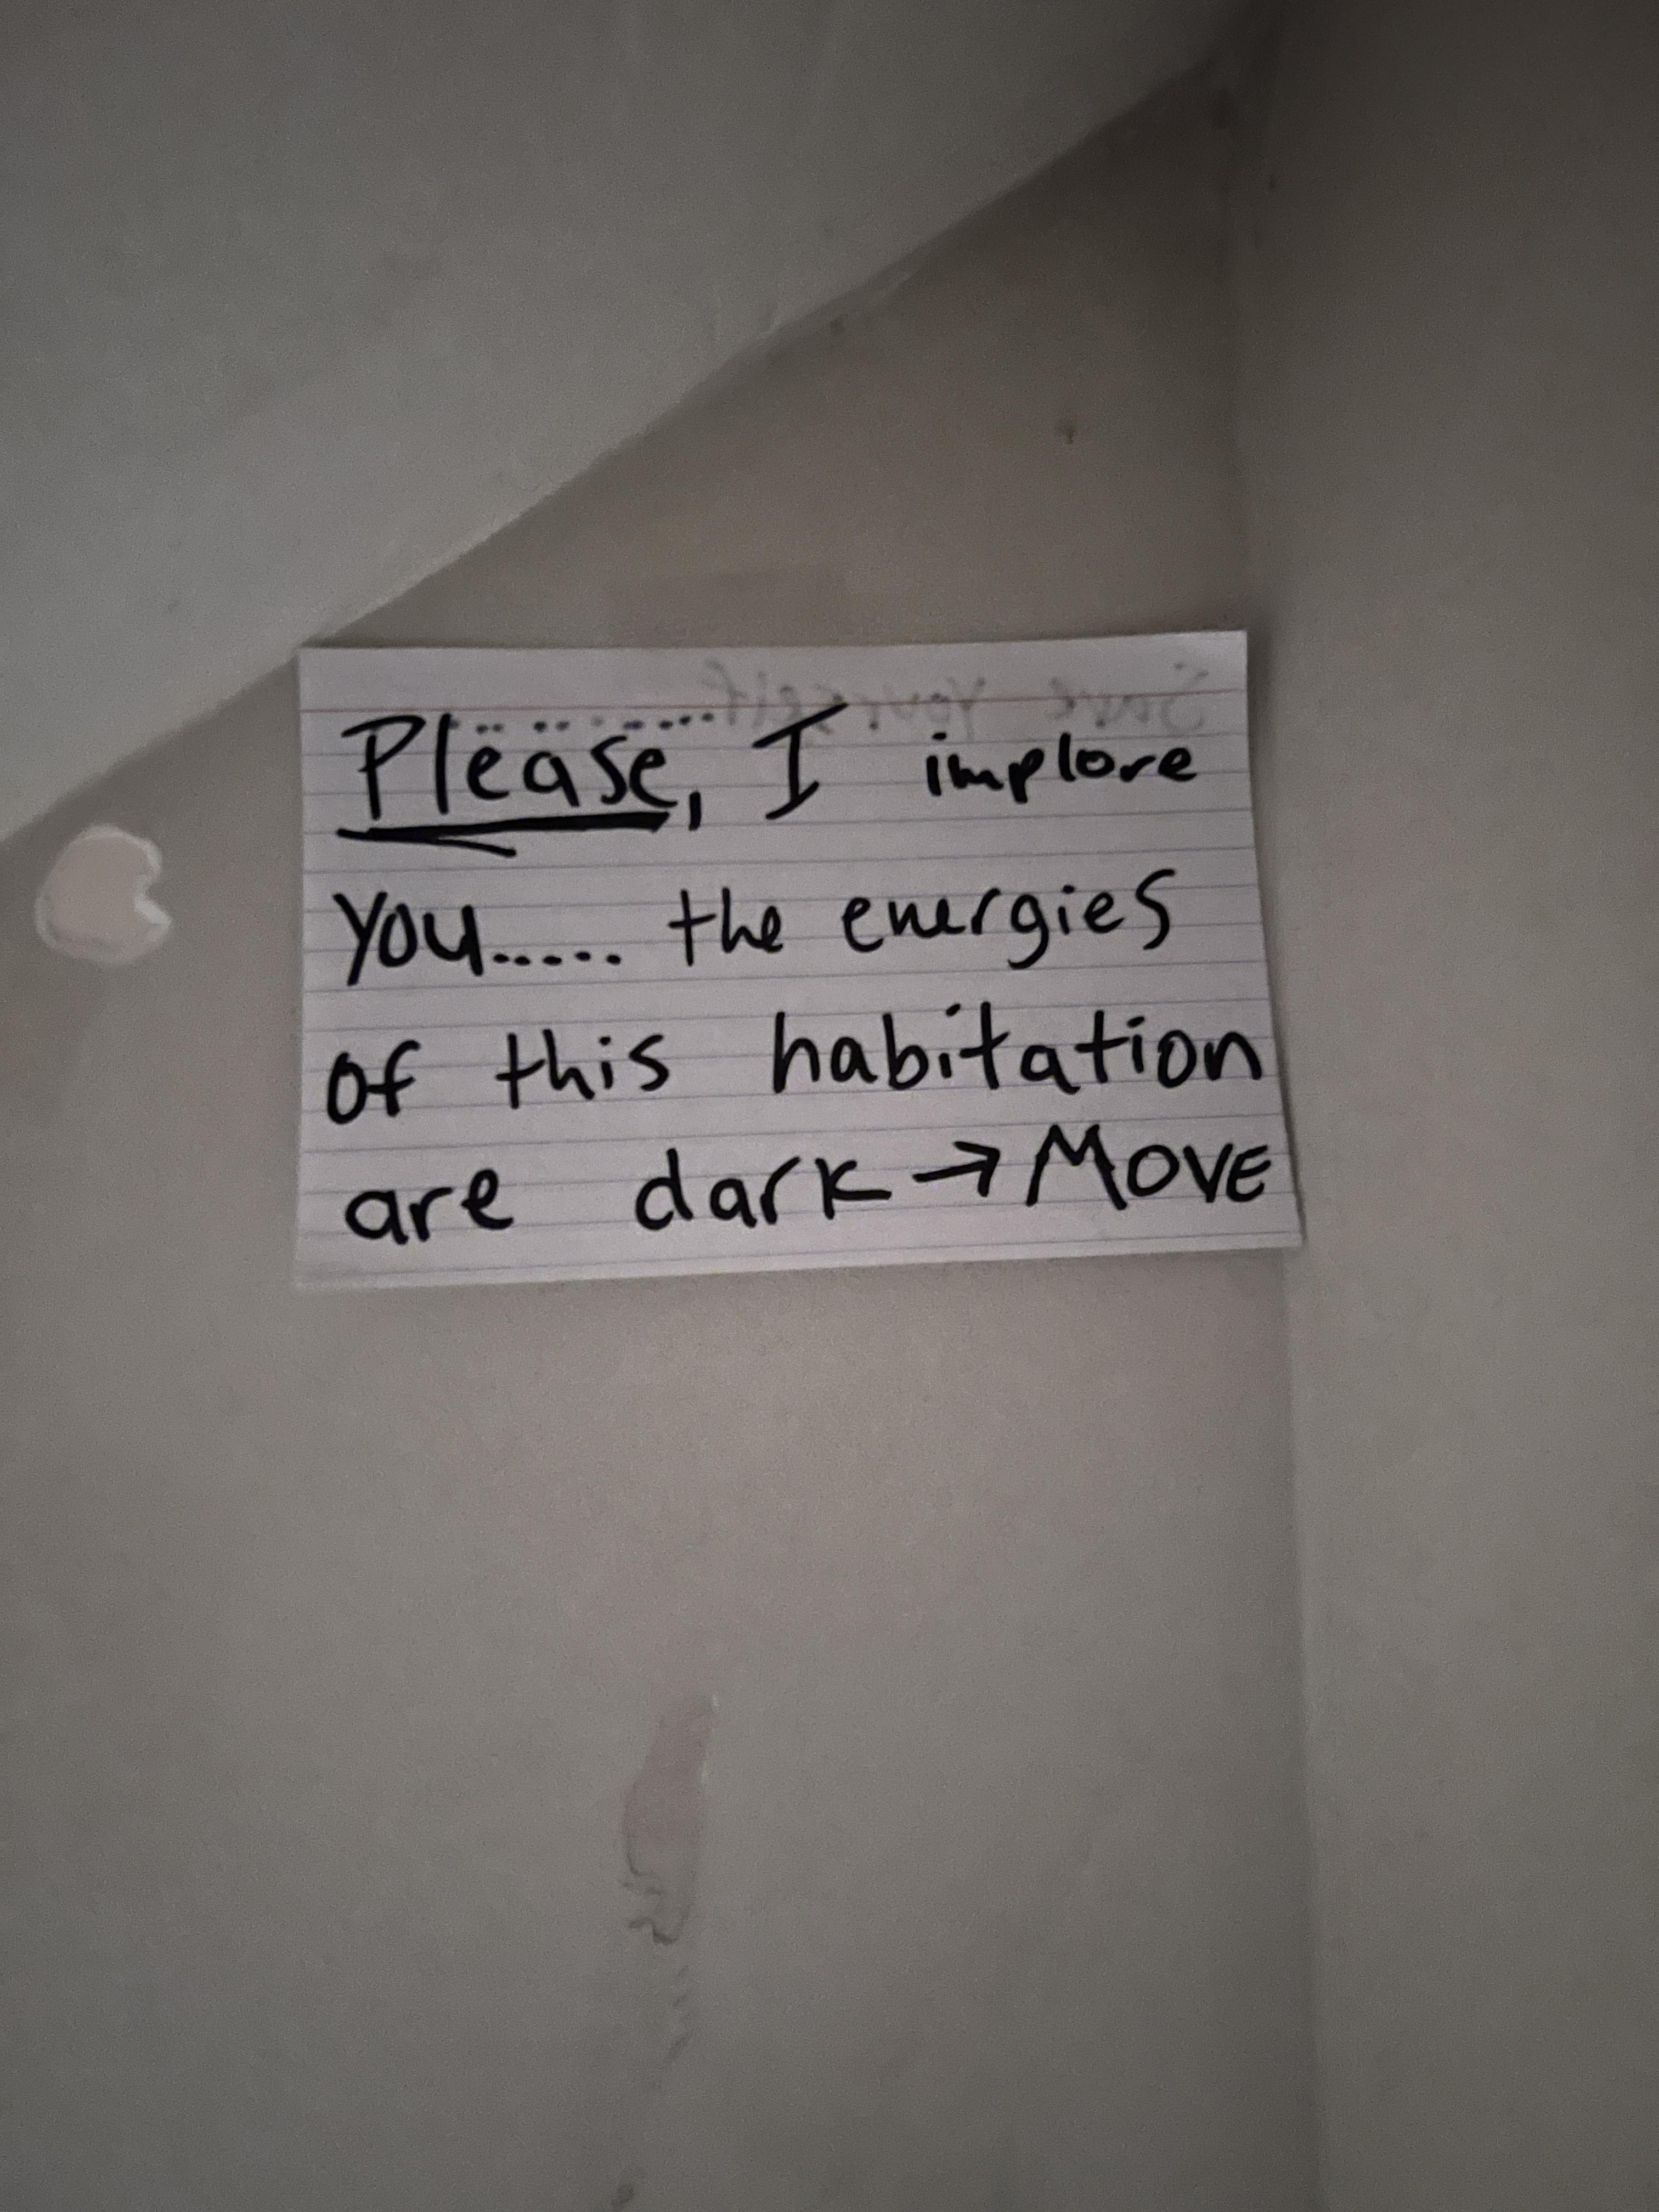 Save Yourself..............
Please, I implore
You..... the energies
of this habitation
are dark → MOVE